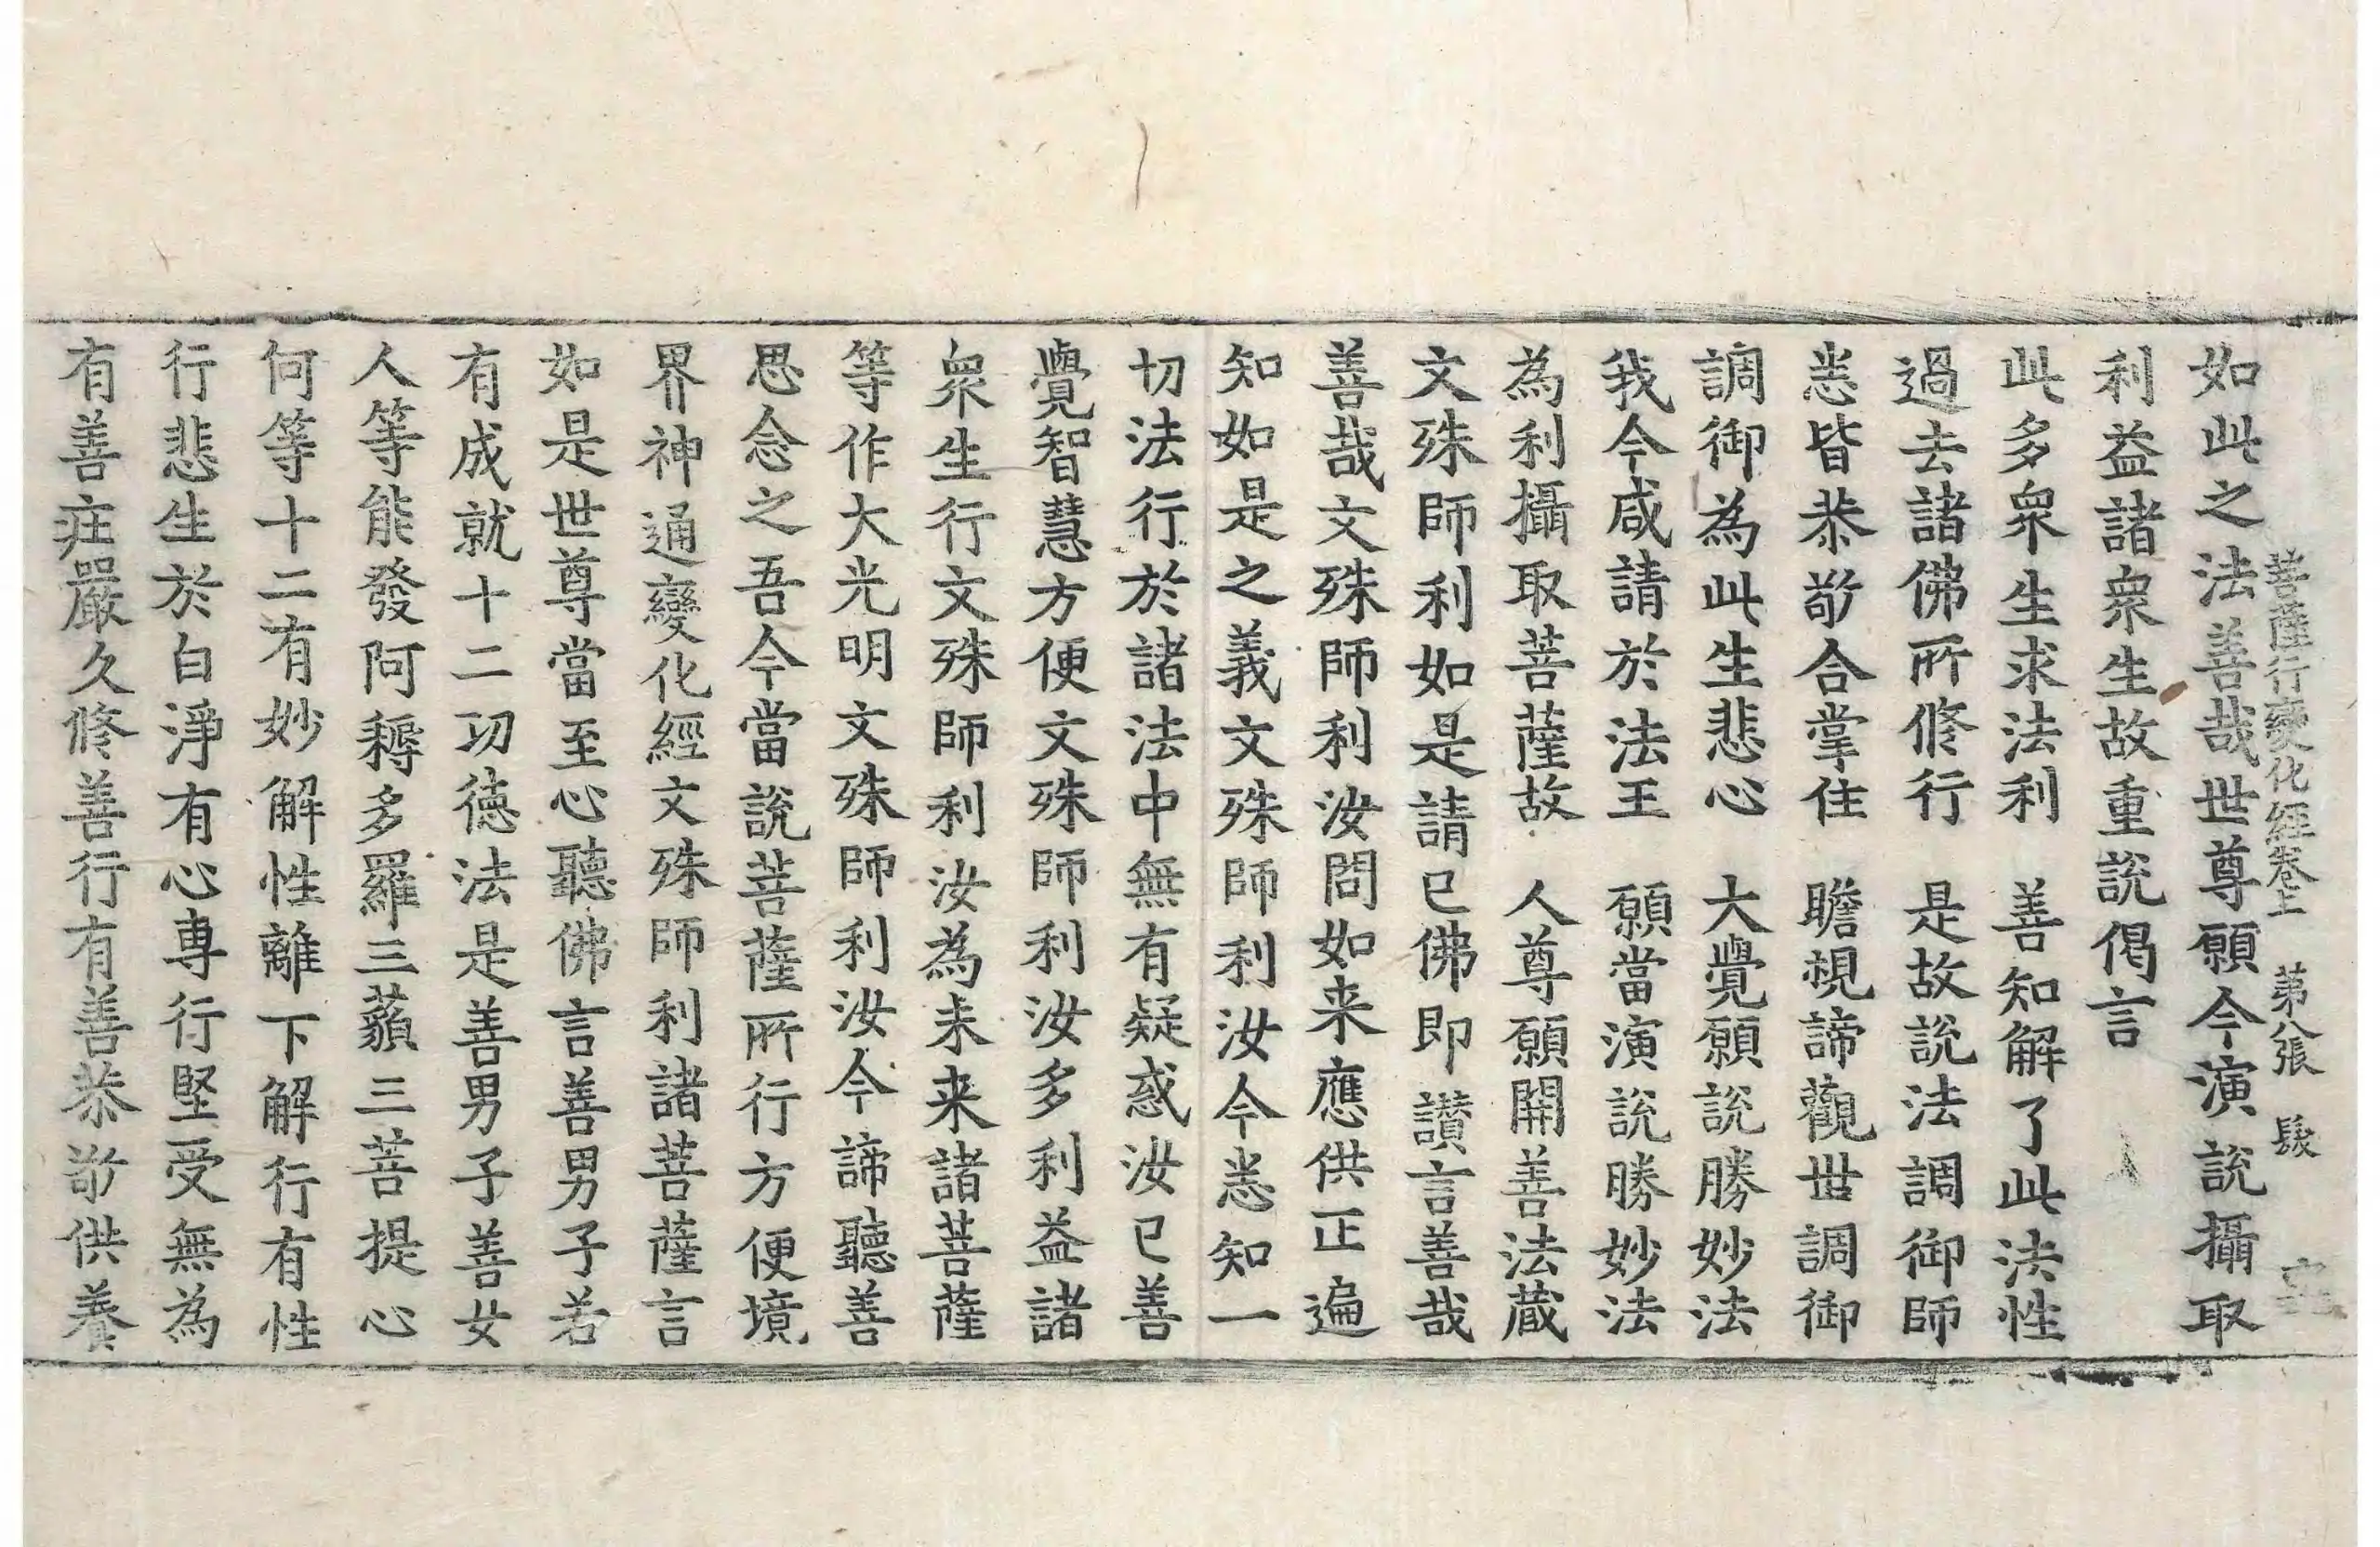 菩薩行變化經卷上　第八張　髮
如此之法善哉世尊願今演說攝取
利益諸衆生故重說偈言
此多衆生求法利　善知解了此法性
過去諸佛所修行　是故說法調御師
悉皆恭敬合掌住　瞻視諦觀世調御
調御為此生悲心　大覺願說勝妙法
我今咸請於法王　願當演說勝妙法
為利攝取菩薩故　人尊願開善法蔵
文殊師利如是請已佛即讃言善哉
善哉文殊師利汝問如来應供正遍
知如是之義文殊師利汝今悉知一
切法行於諸法中無有疑惑汝已善
覺智慧方便文殊師利汝多利益諸
衆生行文殊師利汝為未来諸菩薩
等作大光明文殊師利汝今諦聽善
思念之吾今當說菩薩所行方便境
界神通變化經文殊師利諸菩薩言
如是世尊當至心聽佛言善男子若
有成就十二功徳法是善男子善女
人等能發阿耨多羅三藐三菩提心
何等十二有妙解性離下解行有性
行悲生於白淨有心專行堅受無為
有善莊嚴久修善行有善恭敬供養